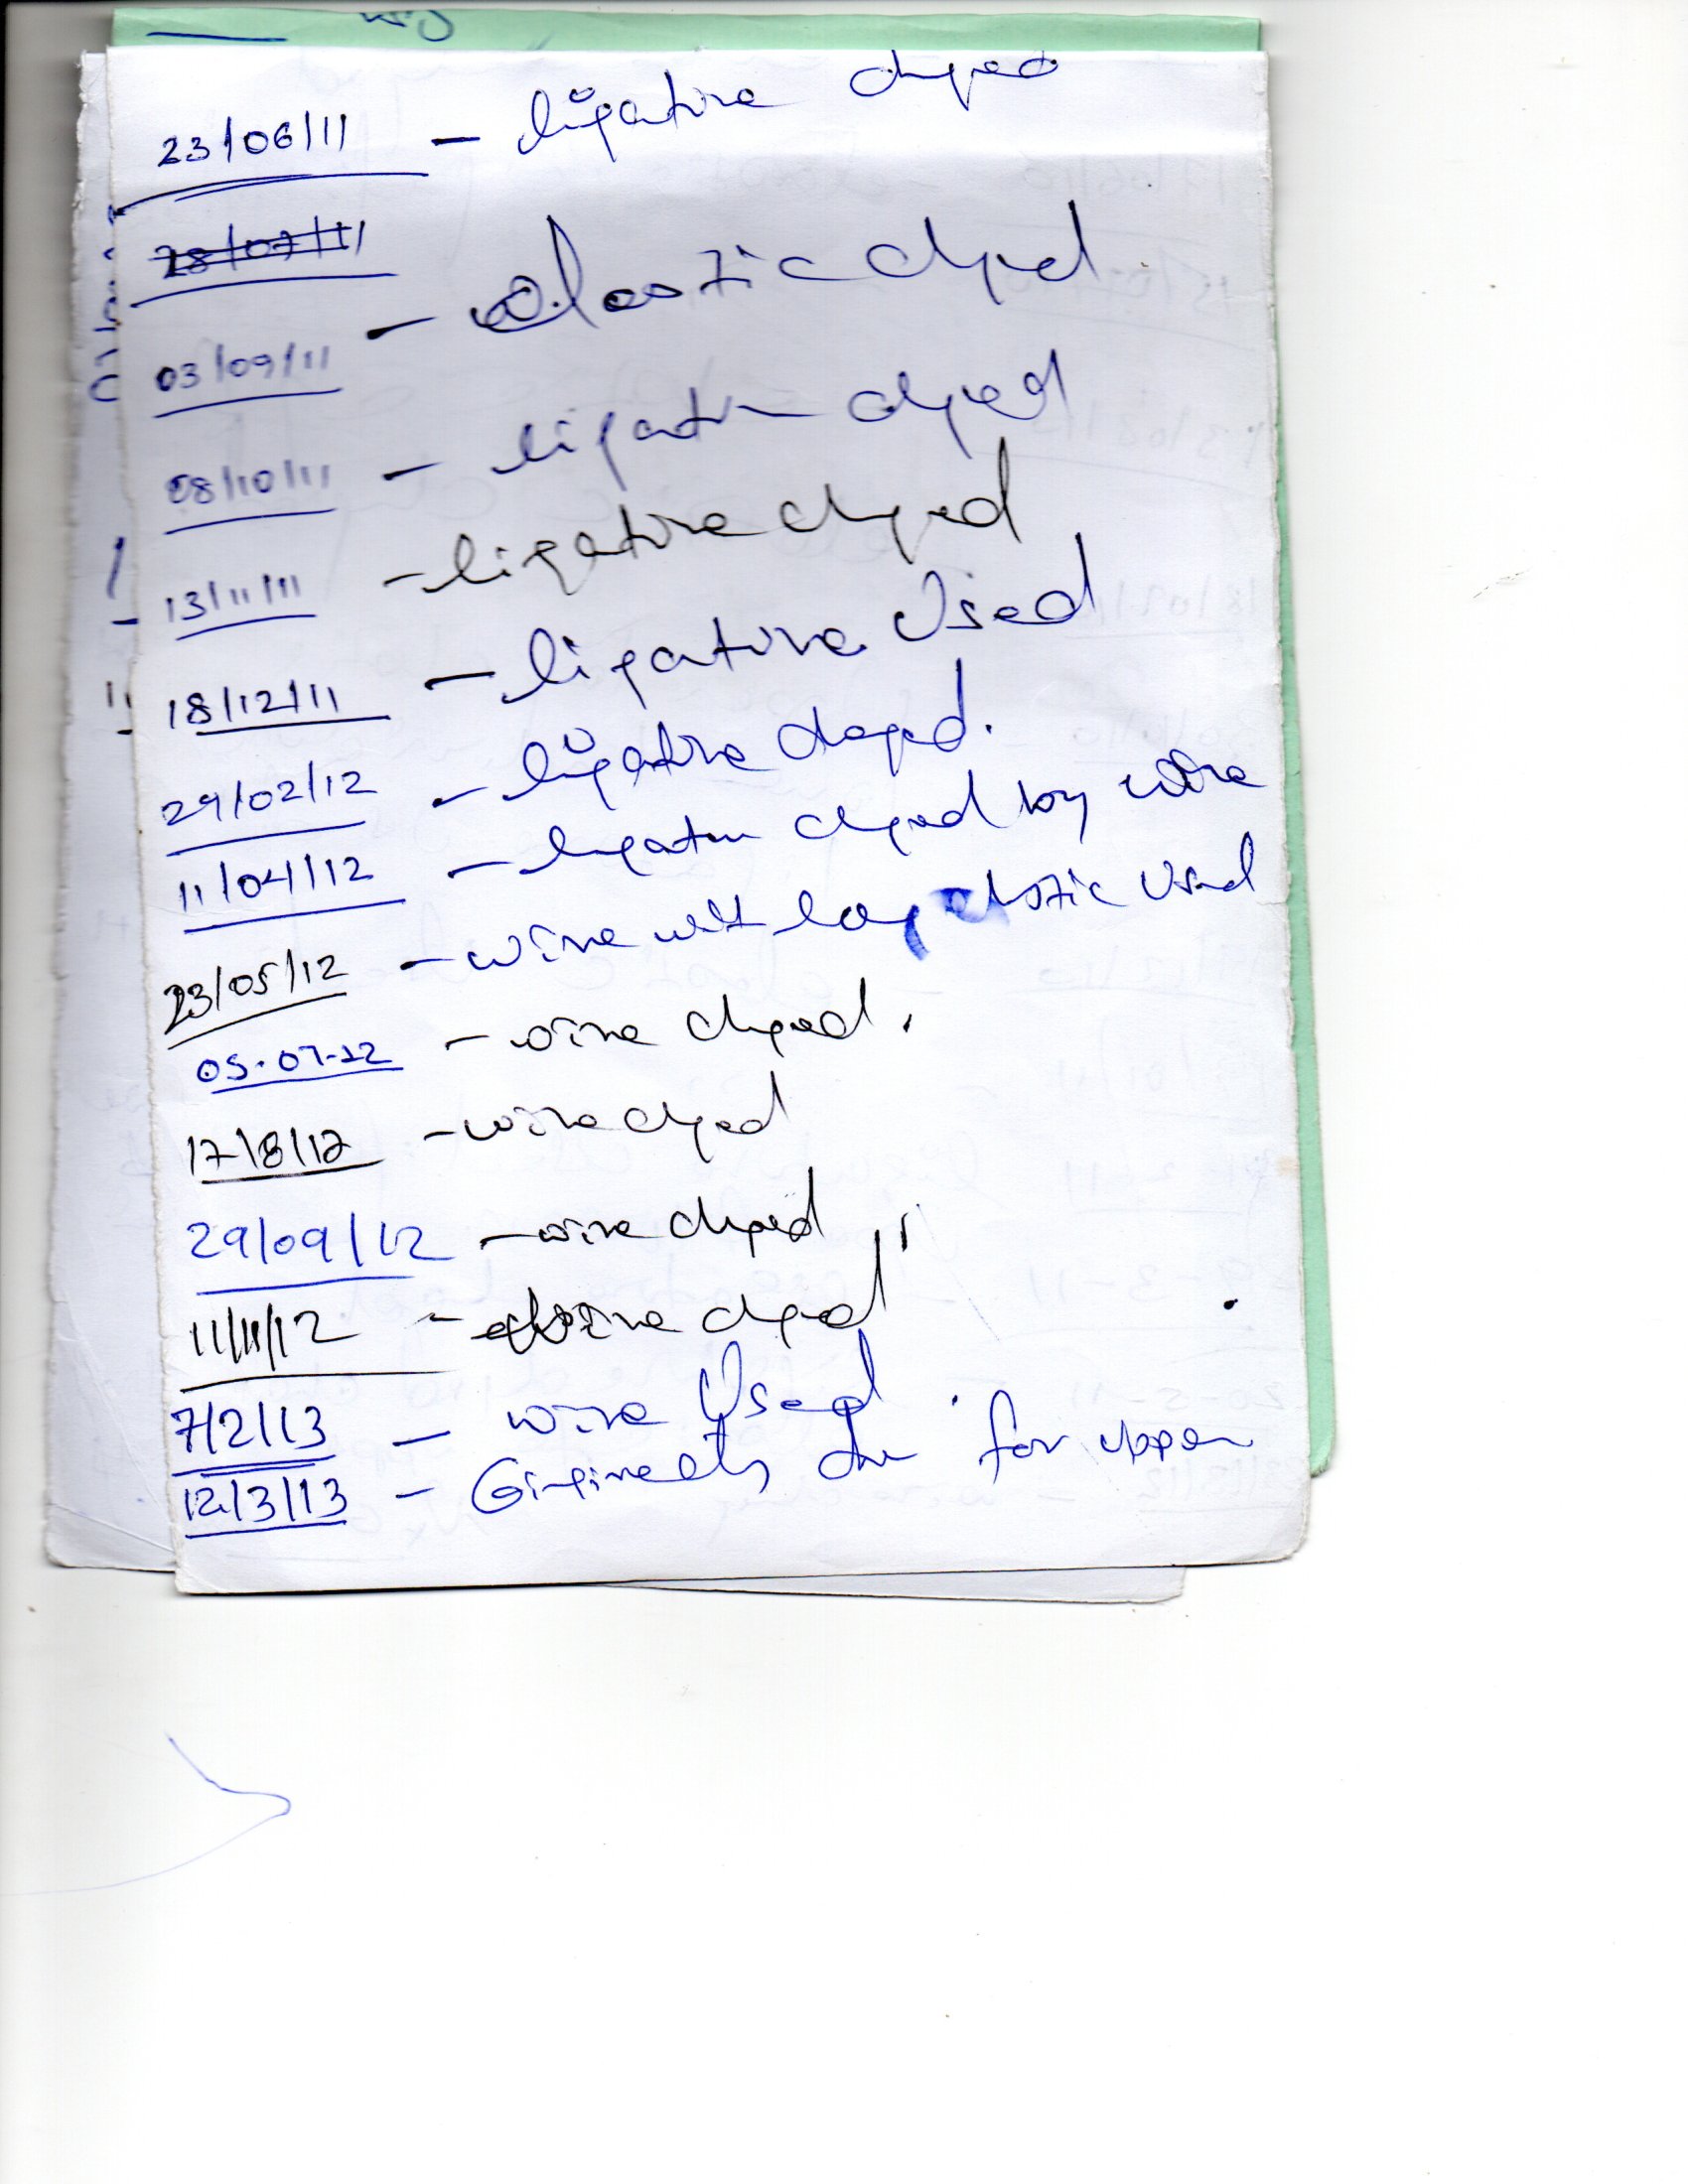 23/06/11 — ligature chyed
28/07/11
03/09/11 — elastic chyed
08/10/11 — ligature chyed
13/11/11 — ligature chyed
18/12/11 — ligature Used
29/02/12 — ligature chaged.
11/04/12 — ligature chyed by wire
23/05/12 — wire with long elastic Used
05-07-12 — wire chyed.
17/8/12 — wire chyed
29/09/12 — wire chyed
11/11/12 — wire chyed
7/2/13 — wire Used
12/3/13 — for upper